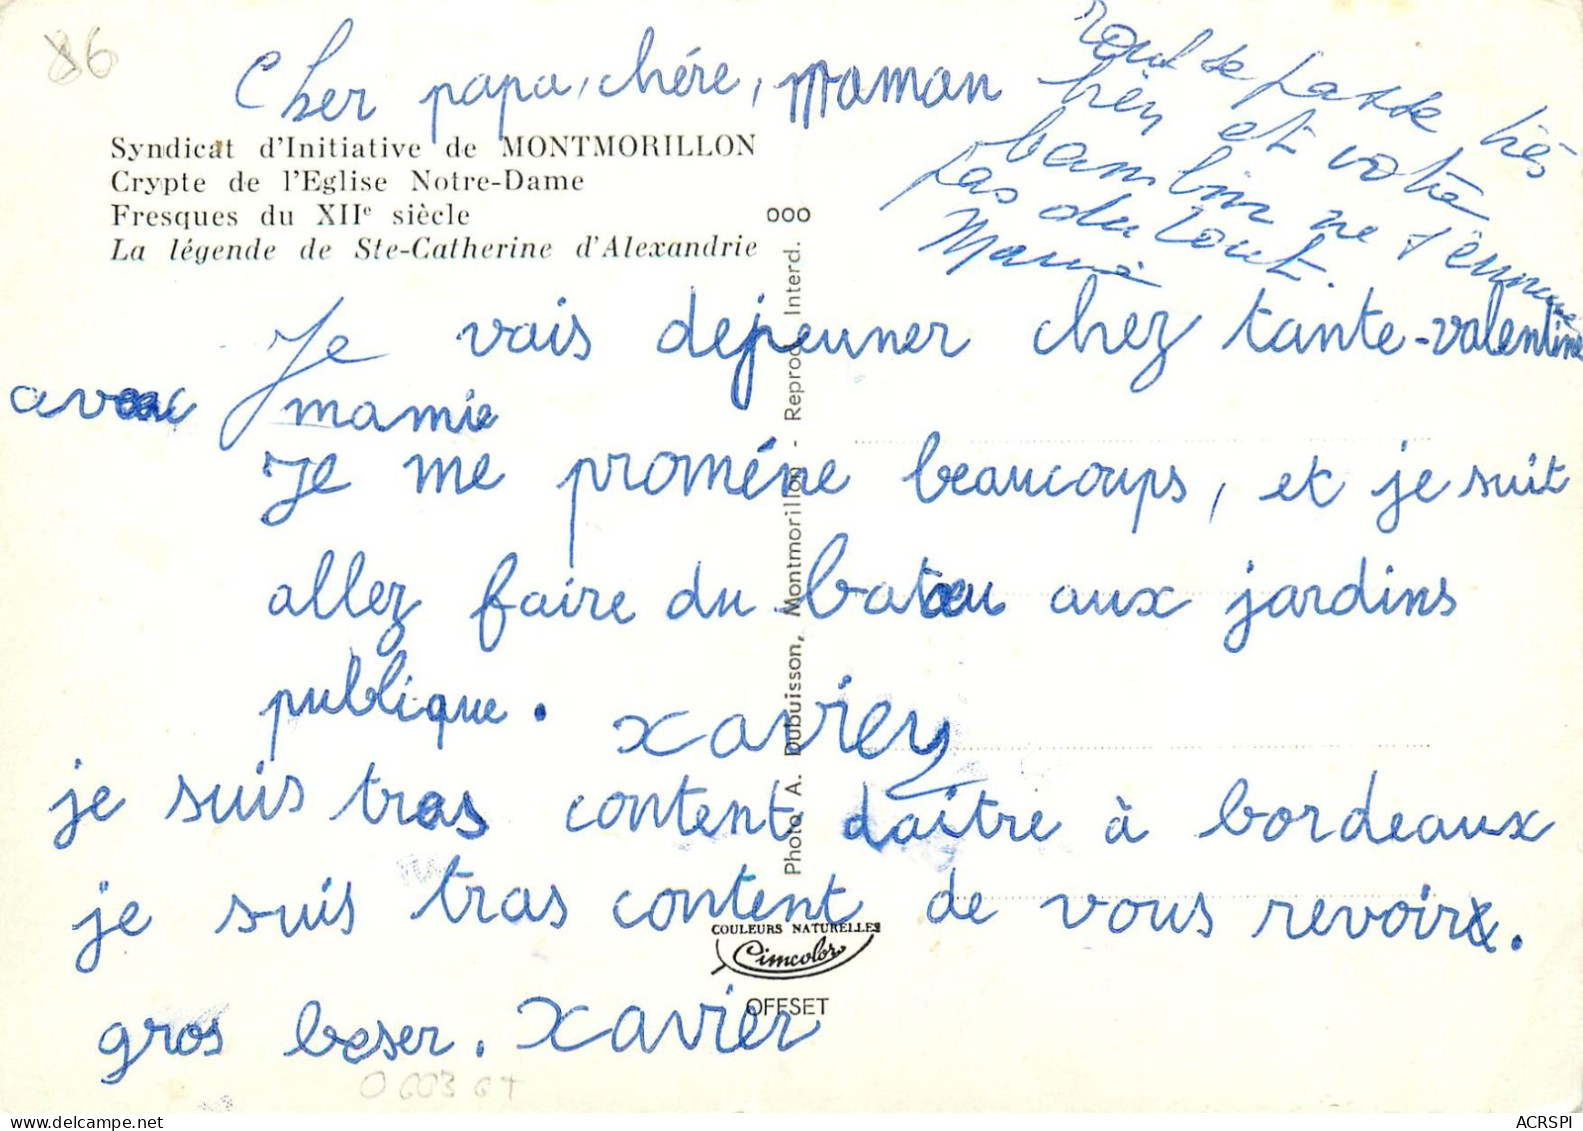 86
Cher papa, chére, maman
Tout se passe très
bien et votre
bambin ne s'ennuie
pas du tout.
Mamie
Syndicat d'Initiative de MONTMORILLON
Crypte de l'Eglise Notre-Dame
Fresques du XIIe siècle
La légende de Ste-Catherine d'Alexandrie
000
Je vais dejeuner chez tante-valentine
avec mamie
Je me proméne beaucoups, et je suit
allez faire du bateau aux jardins
publique. xavier
je suis tras content daître à bordeaux
je suis tras content de vous revoir.
gros beser. xavier
Photo A. Dubuisson, Montmorillon - Reprod. Interd.
COULEURS NATURELLES
Cimcolor
OFFSET
ACRSPI